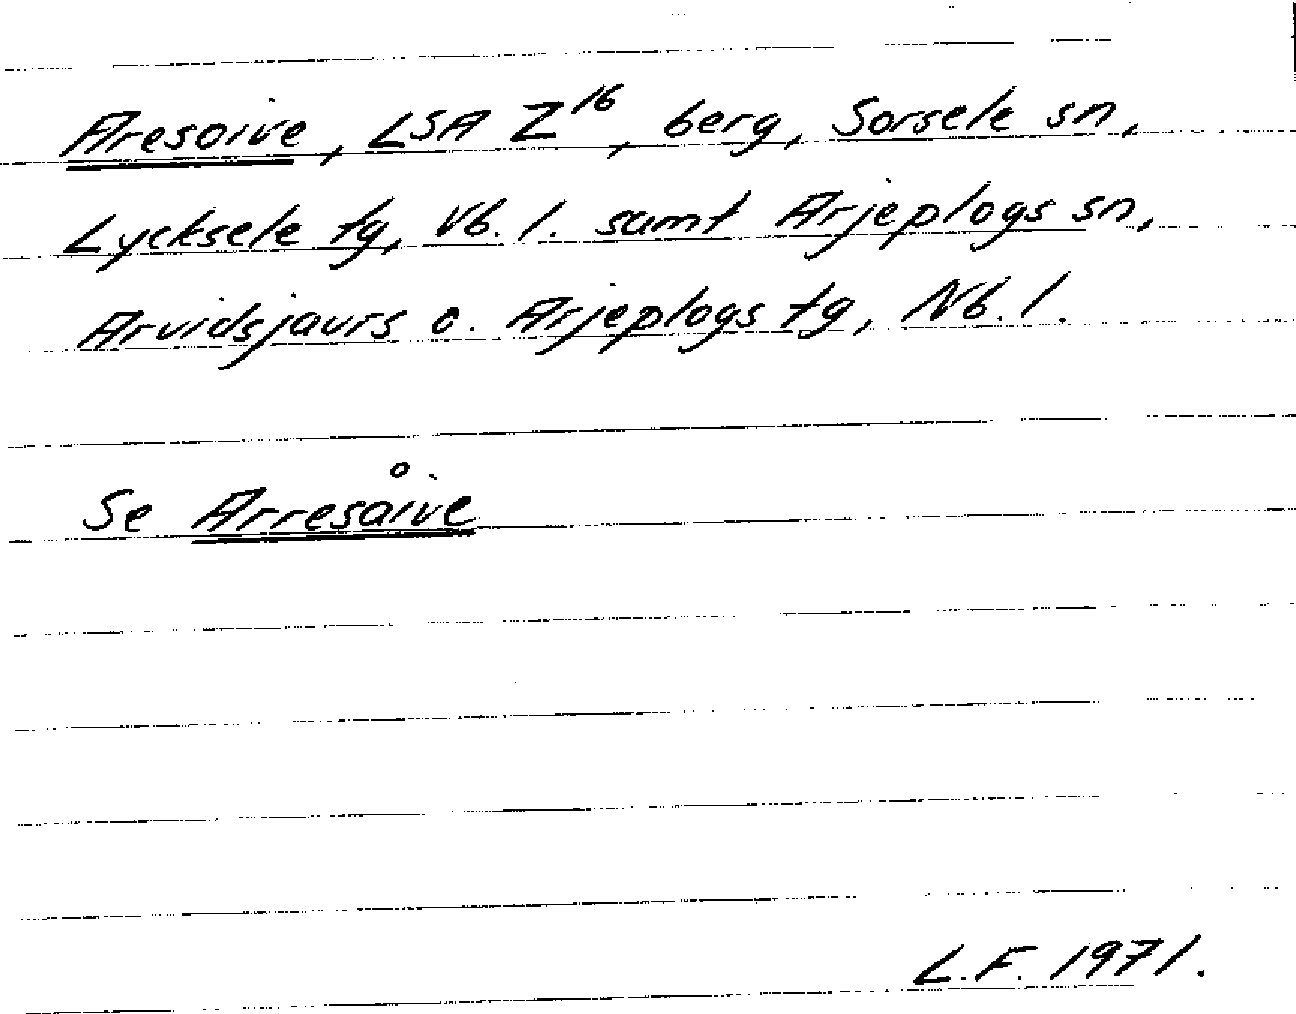 Aresoive, LSA Z16, berg, Sorsele sn,
Lycksele tg, Vb. l. samt Arjeplogs sn,
Arvidsjaurs o. Arjeplogs tg, Nb. l.
Se Arresåive
L.F. 1971.